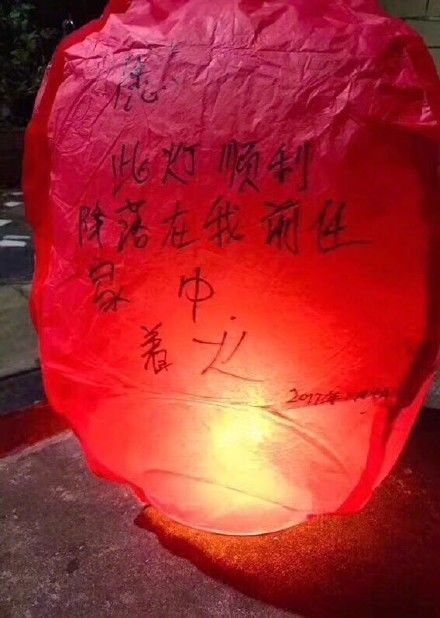 愿
此灯顺利
降落在我前任
家中.
着火
2017年